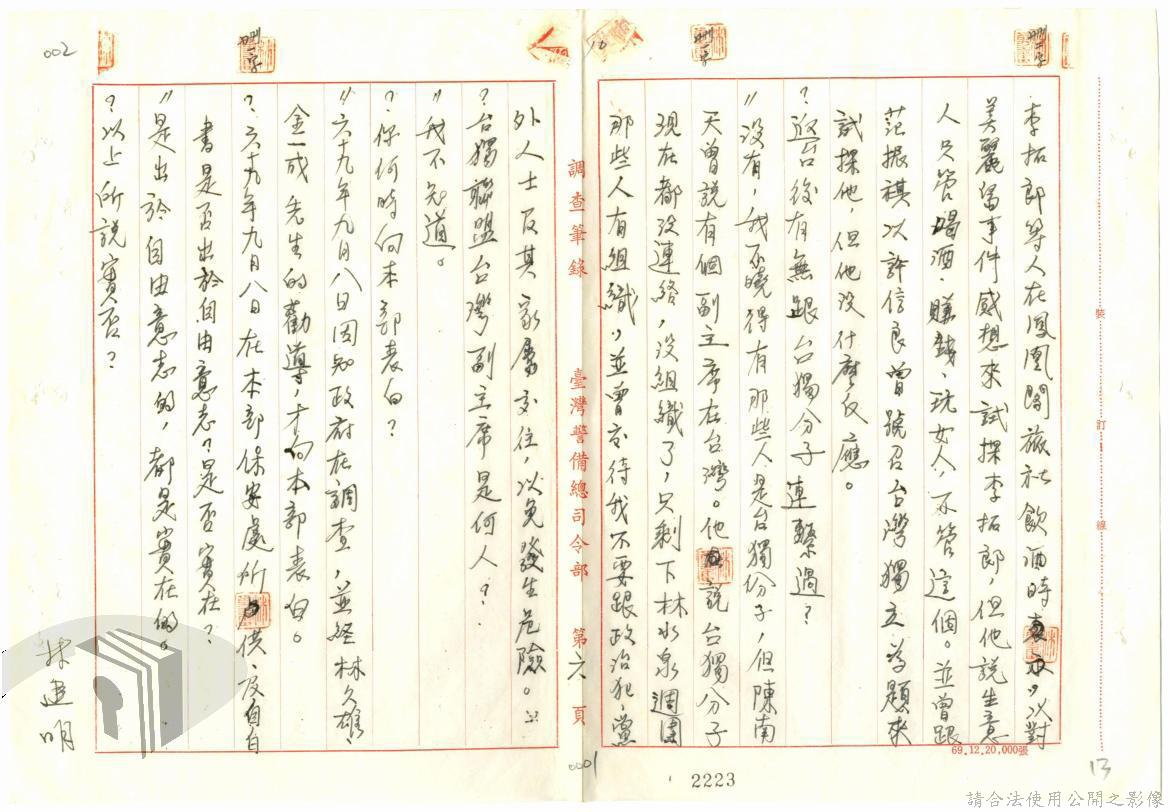 李拓郎等人在鳳凰閣旅社飲酒時,以對
美麗島事件感想來試探李拓郎,但他說生意
人只管喝酒、賺錢、玩女人,不管這個。並曾跟
范振祺以許信良曾號召台灣獨立為題來
試探他,但他沒什麼反應。
?返台後有無跟台獨分子連繫過?
〃沒有,我不曉得有那些人是台獨份子,但陳南
天曾說有個副主席在台灣。他說台獨分子
現在都沒連絡,沒組織了,只剩下林水泉週圍
那些人有組織,並曾交待我不要跟政治犯、黨
調查筆錄 臺灣警備總司令部 第六頁
外人士及其家屬交往,以免發生危險。
?台獨聯盟台灣副主席是何人?
〃我不知道。
?你何時向本部表白?
〃六十九年九月八日因知政府在調查,並經林久雄、
金一成先生的勸導,才向本部表白。
?六十九年九月八日在本部保安處所供、及自白
書是否出於自由意志?是否實在?
〃是出於自由意志的,都是實在的。
?以上所說實否?
林建明
002
刪一字
刪一字
刪二字
裝 訂 線
69.12.20,000張
0001
2223
13
請合法使用公開之影像